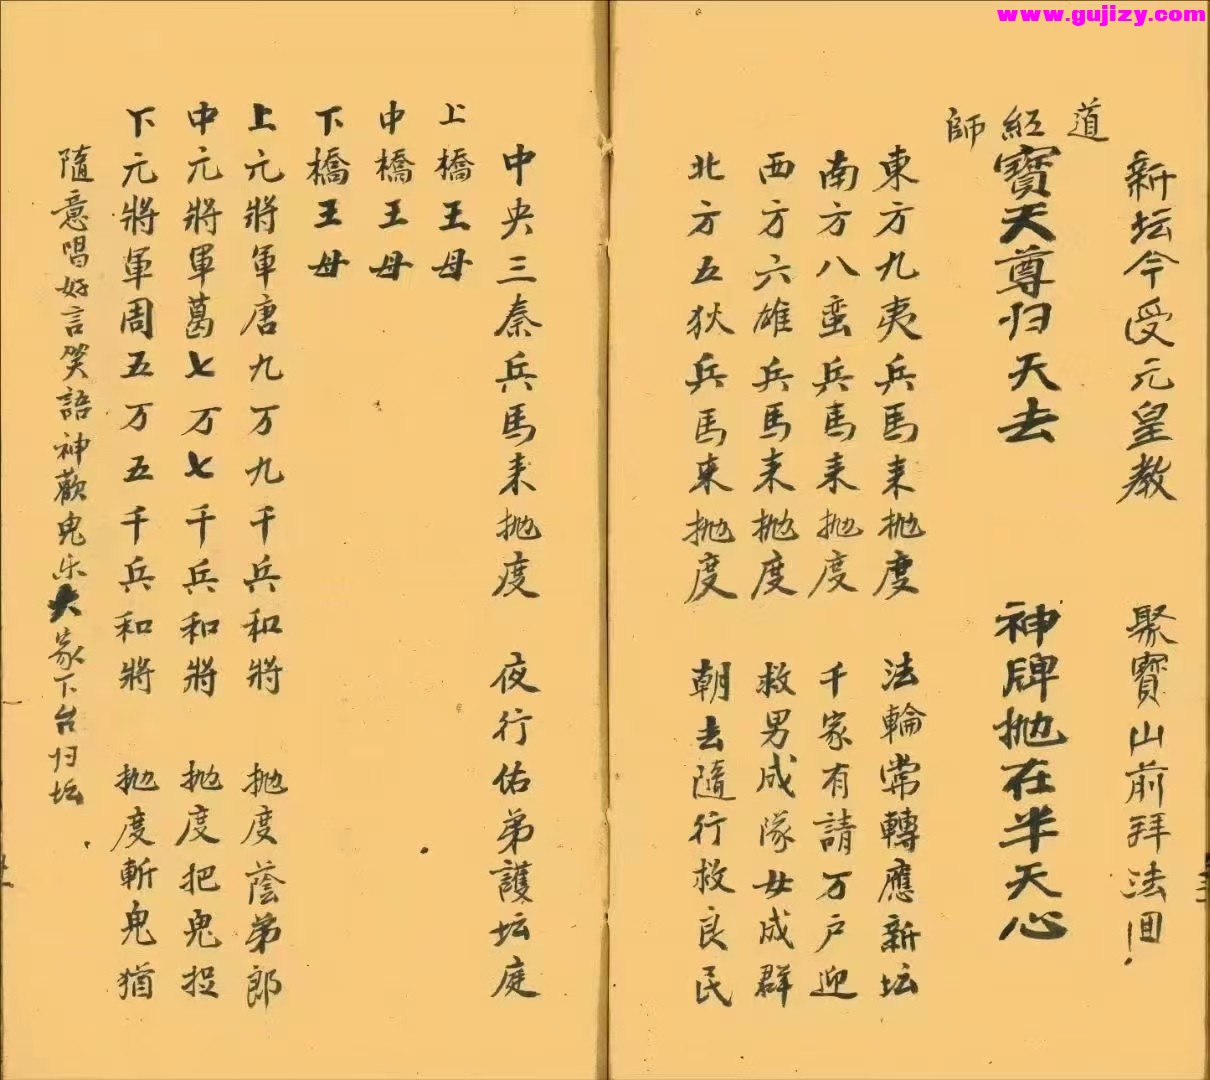 www.gujizy.com
新坛今受元皇教 聚寶山前拜法回!
道經師寶天尊归天去 神牌抛在半天心
東方九夷兵馬来抛度 法輪常轉應新坛
南方八蛮兵馬来抛度 千家有請万户迎
西方六雄兵馬来抛度 救男成隊女成群
北方五狄兵馬来抛度 朝去隨行救良民
中央三秦兵馬来抛度 夜行佑弟護坛庭
上橋王母
中橋王母
下橋王母
上元將軍唐九万九千兵和將 抛度蔭弟郎
中元將軍葛七万七千兵和將 抛度把鬼捉
下元將軍周五万五千兵和將 抛度斬鬼猶
隨意唱好言笑語神歡鬼乐大家下台归坛